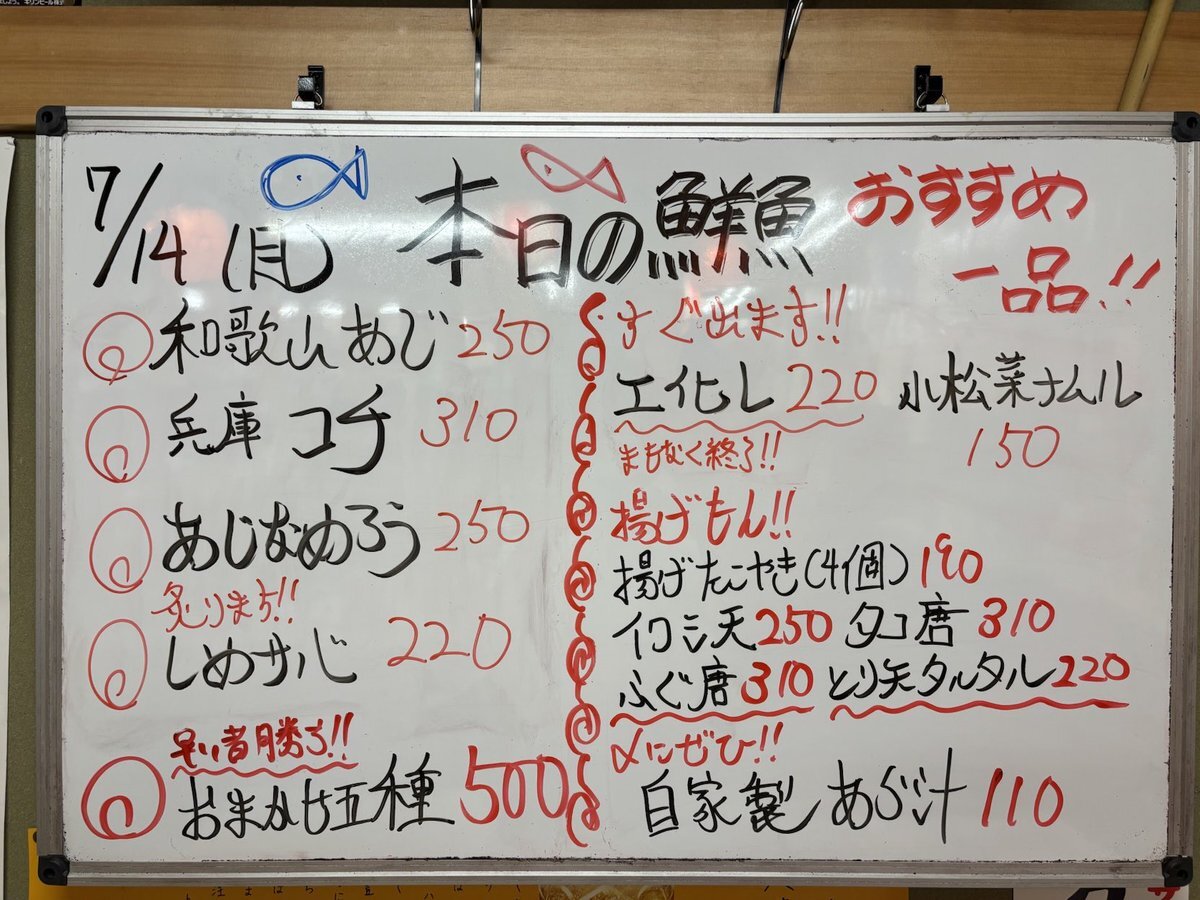 7/14(月) 本日の鮮魚
おすすめ
一品!!
和歌山あじ 250
兵庫 コチ 310
あじなめろう 250
炙りまち!!
しめサバ 220
早い者勝ち!!
おまかせ五種 500
すぐ出ます!!
エイヒレ 220
まもなく終了!!
小松菜ナムル
150
揚げもん!!
揚げたこやき(4個) 190
イワシ天 250 タコ唐 310
ふぐ唐 310 とり天タルタル 220
〆にぜひ!!
自家製 あら汁 110